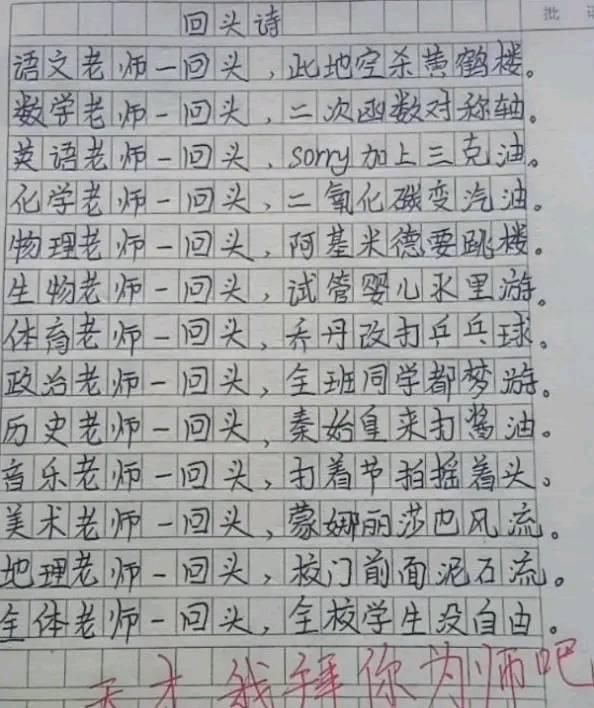 批
回头诗
语文老师一回头，此地空杀黄鹤楼。
数学老师一回头，二次函数对称轴。
英语老师一回头，sorry加上三克油。
化学老师一回头，二氧化碳变汽油。
物理老师一回头，阿基米德要跳楼。
生物老师一回头，试管婴儿水里游。
体育老师一回头，乔丹改打乒乓球。
政治老师一回头，全班同学都梦游。
历史老师一回头，秦始皇来打酱油。
音乐老师一回头，打着节拍摇着头。
美术老师一回头，蒙娜丽莎也风流。
地理老师一回头，校门前面泥石流。
全体老师一回头，全校学生没自由。
天才 我拜你为师吧